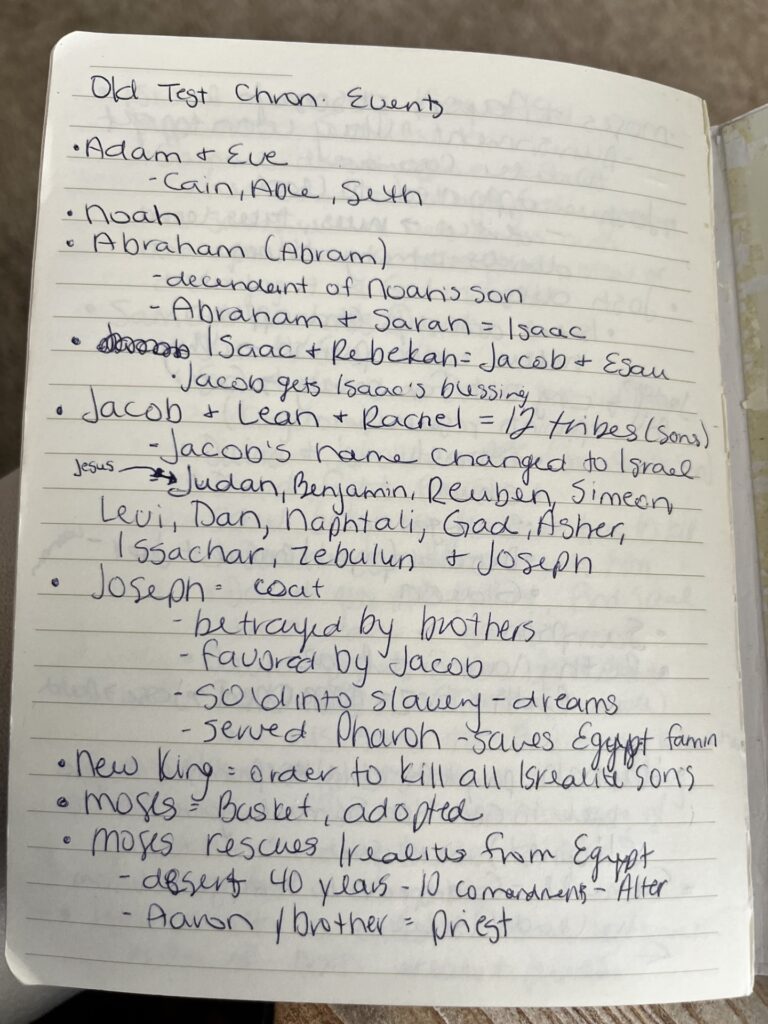 Old Test Chron. Events
• Adam + Eve
- Cain, Able, Seth
• Noah
• Abraham (Abram)
- decendent of Noah's son
- Abraham + Sarah = Isaac
• Isaac + Rebekah = Jacob + Esau
• Jacob gets Isaac's blessing
• Jacob + Leah + Rachel = 12 tribes (sons)
- Jacob's name changed to Israel
Jesus → Judah, Benjamin, Reuben, Simeon,
Levi, Dan, Naphtali, Gad, Asher,
- Issachar, Zebulun + Joseph
• Joseph = coat
- betrayed by brothers
- favored by Jacob
- sold into slavery - dreams
- served Pharoh - saves Egypt famin
• New King = order to kill all Isrealite sons
• Moses = Basket, adopted
• Moses rescues Irealites from Egypt
- desert 40 years - 10 comandments - Alter
- Aaron / brother = priest